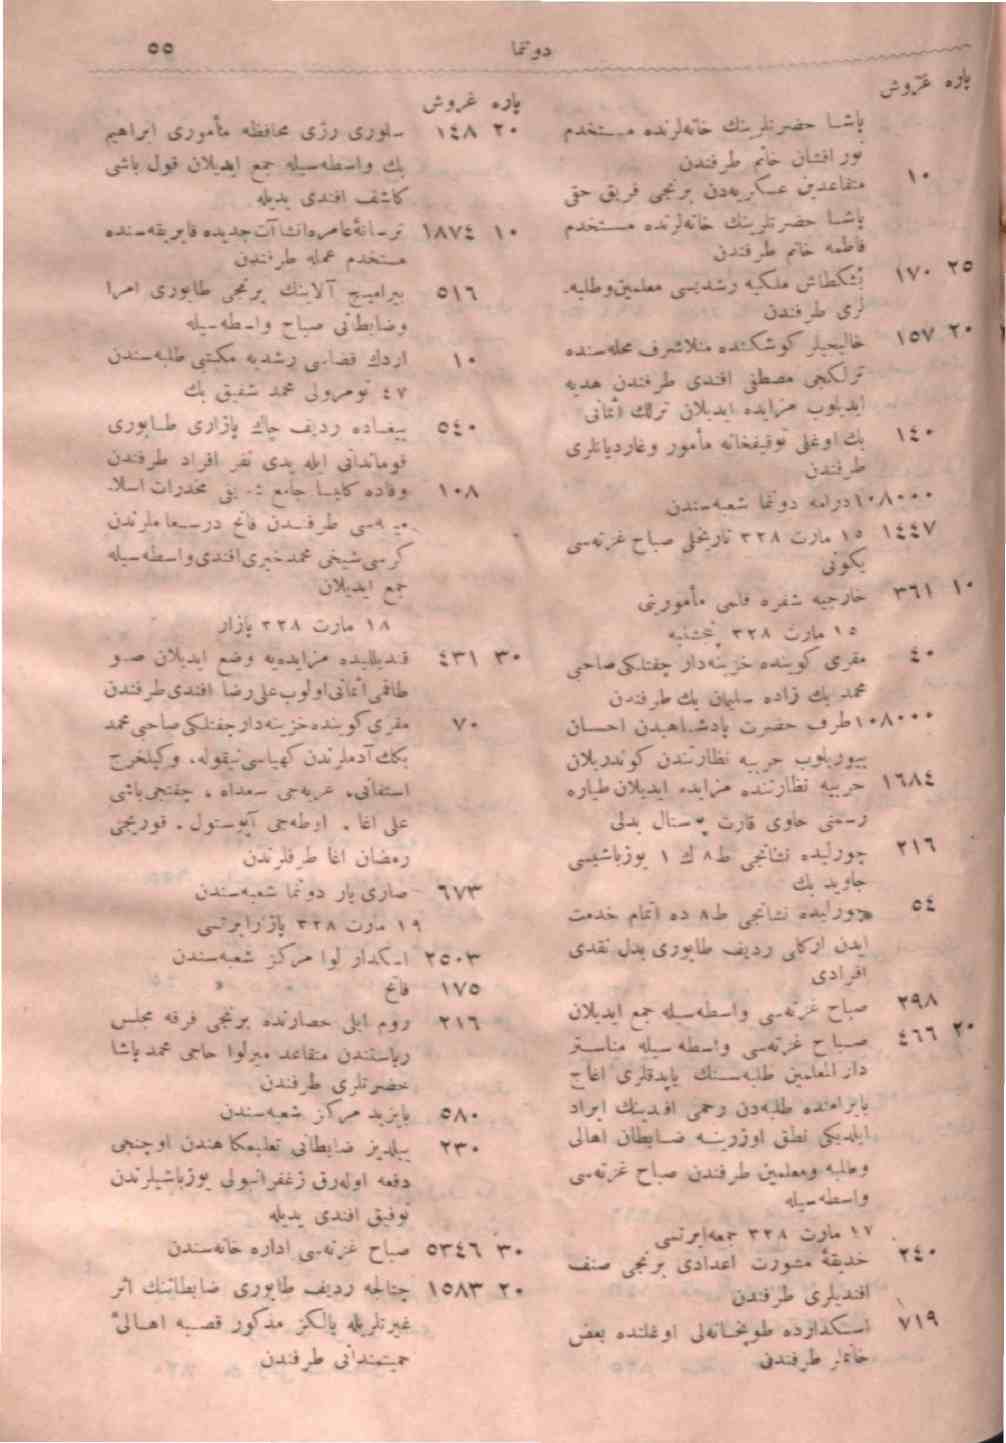 دوتنما ٥٥
پاره غروش
پاشا حضرتلرينك خانه‌لرنده مستخدم
نور افشان خانم طرفندن
١٠ متقاعدين عسكريه‌دن برنجى فريق حقى
پاشا حضرتلرينك خانه‌لرنده مستخدم
فاطمه خانم طرفندن
٢٥ ١٧٠ بشكطاش ملكيه رشديسى معلمين وطلبه‌
لرى طرفندن
٢٠ ١٥٧ خاليجيلر كوشكنده منلاشرف محله‌سنده
ترلكجى مصطفى افندى طرفندن هديه
ايديلوب مزايده ايديلان ترلك اثمانى
١٤٠ بك اوغلى توقيفخانه مأمور وغارديانلرى
طرفندن
١٠٨٠٠٠ درامه دوتنما شعبه‌سندن
١٤٤٧ ١٥ مارت ٣٢٨ تاريخلى صباح غزته‌سى
يكونى
١٠ ٣٦١ خارجيه شفره قلمى مأمورينى
١٥ مارت ٣٢٨ پنجشنبه
٤٠ مقرى كوينده خزينه‌دار چفتلكى صاحبى
محمد بك زاده سليمان بك طرفندن
١٠٨٠٠٠ طرف حضرت پادشاهيدن احسان
بيوريلوب حربيه نظارتندن كوندريلان
١٦٨٤ حربيه نظارتنده مزايده ايديلان طياره
رسمنى حاوى قارت پوستال بدلى
٢١٦ چورليده نشانجى ط ٨ ك ١ يوزباشيسى
جاويد بك
٥٤ چورليده نشانجى ط ٨ ده اتمام خدمت
ايدن اركلى رديف طابورى بدل نقدى
افرادى
٢٩٨ صباح غزته‌سى واسطه‌سيله جمع ايديلان
٢٠ ٤٦٦ صباح غزته‌سى واسطه‌سيله مناستر
دار المعلمين طلبه‌سنك ياپدقلرى اغاج
بايرامنده طلبه‌دن رحمى افندينك ايراد
ايلديكى نطق اوزرينه ضابطان اهالى
وطلبه ومعلمين طرفندن صباح غزته‌سى
واسطه‌سيله
١٧ مارت ٣٢٨ جمعه‌ايرتسى
٢٤٠ حديقۀ مشورت اعدادى برنجى صنف
افنديلرى طرفندن
٧١٩ اسكدارده طوپخانه‌لى اوغلنده بعض
خانملر طرفندن
پاره غروش
٢٠ ١٤٨ سلورى رژى محافظه مأمورى ابراهيم
بك واسطه‌سيله جمع ايديلان قول باشى
كاشف افندى يديله
١٠ ١٨٧٤ ترسانۀ عامره انشاآت جديده فابريقه‌سنده
مستخدم عمله طرفندن
٥١٦ بيراميج آلاينك برنجى طابورى امرا
وضابطانى صباح واسطه‌سيله
١٠ اردك قضاسى رشديه مكتبى طلبه‌سندن
٤٧ نومرولى محمد شفيق بك
٥٤٠ رديف چاى پازارى طابورى
قوماندانى ايله يدى نفر افراد طرفندن
١٠٨ وفاده كليسا جامع مخدرات اسلا
ميه‌سى طرفندن فاتح درسعاملرندن
كرسى شيخى محمد خيرى افندى واسطه‌سيله
جمع ايديلان
١٨ مارت ٣٢٨ پازار
٣٠ ٤٣١ قنديلليده مزايده‌يه وضع ايديلان صو
طاقمى اثمانى اولوب على رضا افندى طرفندن
٧٠ مقرى كوينده خزينه‌دار چفتلكى صاحبى محمد
بكك آدملرندن كهياسى نيقوله، وكيلخرج
استفانى، عربه‌جى سعداه، چفتجى باشى
على اغا، اوطه‌جى آپوستول، قوريجى
رمضان اغا طرفلرندن
٦٧٣ صارى يار دوتنما شعبه‌سندن
١٩ مارت ٣٢٨ پازارايرتسى
٢٥٠٣ اسكدار لوا مركز شعبه‌سندن
١٧٥ فاتح » » »
٢١٦ روم ايلى حصارنده برنجى فرقه مجلس
رياستندن متقاعد ميرلوا حاجى محمد پاشا
حضرتلرى طرفندن
٥٨٠ بايزيد مركز شعبه‌سندن
٢٣٠ ييلديز ضابطانى تعليمكاهندن اوچنجى
دفعه اوله‌رق زعفرانبولى يوزباشيلرندن
توفيق افندى يديله
٣٠ ٥٣٤٦ صباح غزته‌سى اداره خانه‌سندن
٢٠ ١٥٨٣ چتالجه رديف طابورى ضابطاننك اثر
غيرتلريله يالكز مذكور قصبه اهالئ
حميتمندانى طرفندن